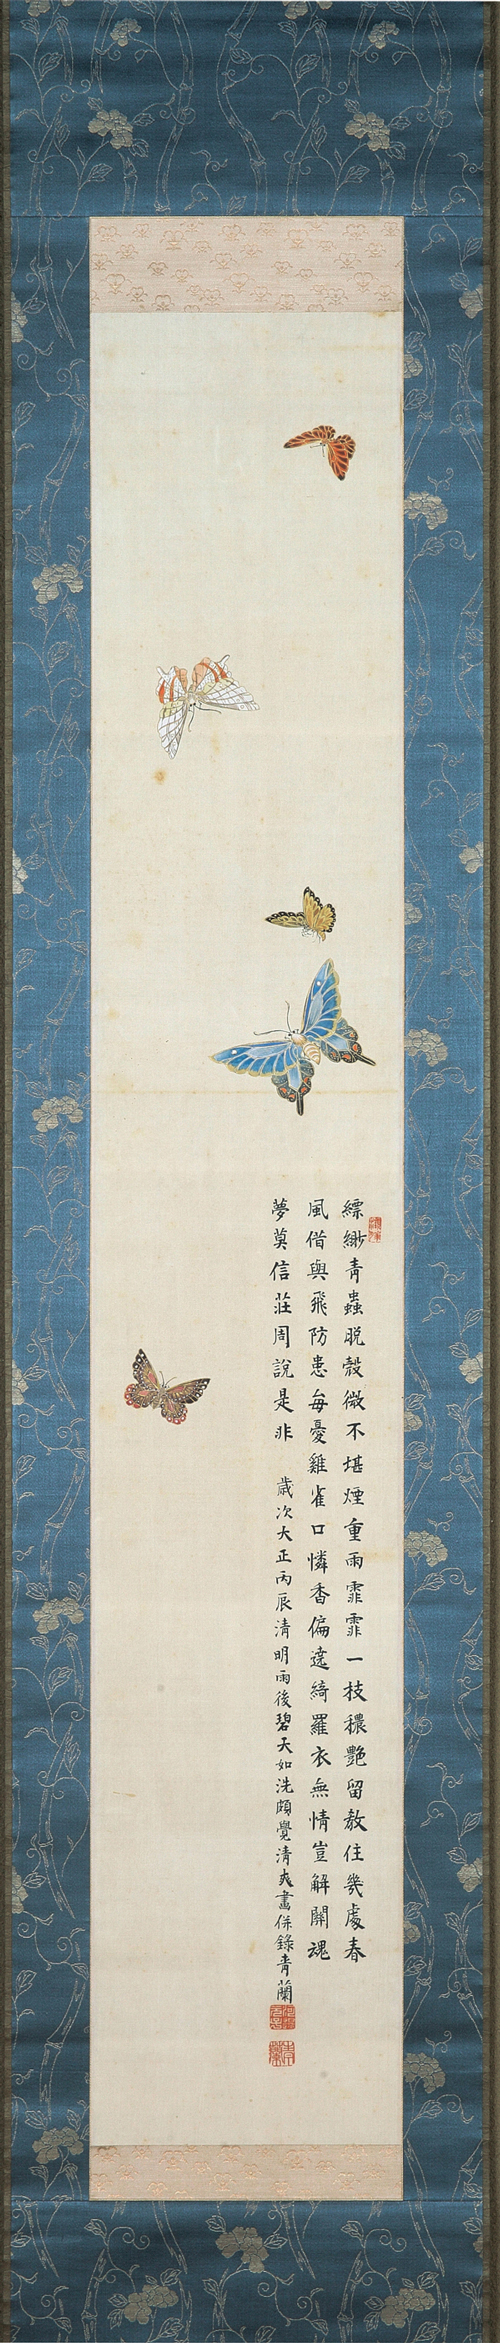 縹緲青蟲脱殼微不堪煙重雨霏霏一枝穠艶留教住幾處春
風借與飛防患毎憂雞雀口憐香偏遶綺羅衣無情豈解關魂
夢莫信莊周說是非
歳次大正丙辰清明雨後碧天如洗頗覺清爽畫併錄青蘭